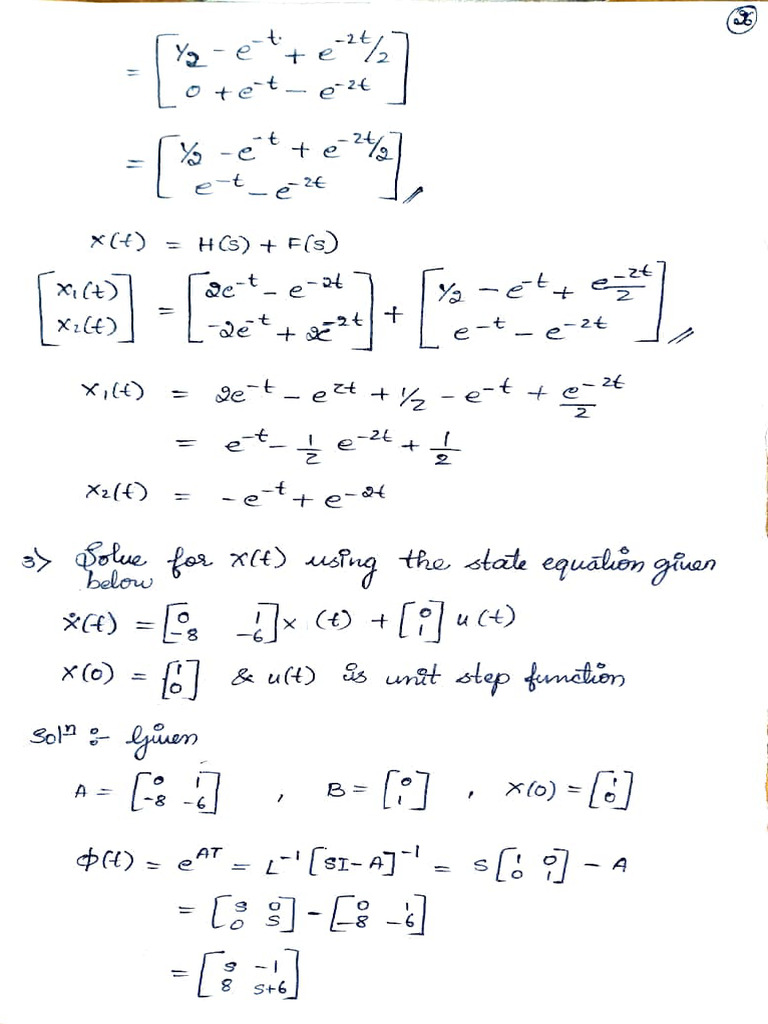 26
= [1/2 - e^-t + e^-2t/2
0 + e^-t - e^-2t]
= [1/2 - e^-t + e^-2t/2
e^-t - e^-2t]
x(t) = H(s) + F(s)
[x1(t)
x2(t)] = [2e^-t - e^-2t
-2e^-t + 2e^-2t] + [1/2 - e^-t + e^-2t/2
e^-t - e^-2t]
x1(t) = 2e^-t - e^2t + 1/2 - e^-t + e^-2t/2
= e^-t - 1/2 e^-2t + 1/2
x2(t) = -e^-t + e^-2t
3> Solve for x(t) using the state equation given
below
ẋ(t) = [0 1
-8 -6] x(t) + [0
1] u(t)
x(0) = [1
0] & u(t) is unit step function
Solⁿ :- Given
A = [0 1
-8 -6] , B = [0
1] , x(0) = [1
0]
ϕ(t) = e^AT = L^-1 [SI-A]^-1 = S[1 0
0 1] - A
= [s 0
0 s] - [0 1
-8 -6]
= [s -1
8 s+6]